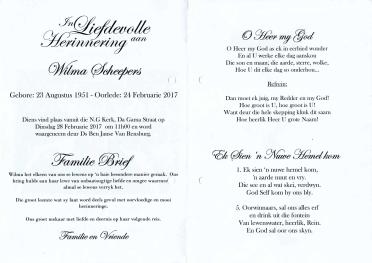 In Liefdevolle
Herinnering aan
Wilma Scheepers
Gebore: 23 Augustus 1951 - Oorlede: 24 Februarie 2017
Diens vind plaas vanuit die N.G Kerk, Da Gama Straat op
Dinsdag 28 Februarie 2017 om 11h00 en word
waargeneem deur Ds Ben Janse Van Rensburg.
Familie Brief
Wilma het elkeen van ons se lewens op 'n baie besondere manier geraak. Ons
bring hulde aan haar lewe van onbaatsugtige liefde en omgee waarmee
almal se lewens verryk het.
Die groot leemte wat sy laat word deels gevul met eervolle en mooi
herinneringe.
Ons groet mekaar met liefde en deernis op haar volgende reis.
Familie en Vriende
O Heer my God
O Heer my God as ek in eerbied wonder
En al U werke elke dag aanskou
Die son en maan, die aarde, sterre, wolke,
Hoe U dit elke dag so onderhou...
Refrein:
Dan moet ek juig, my Redder en my God!
Hoe groot is U, hoe groot is U!
Want deur die hele skepping klink dit saam
Hoe heerlik Heer U grote Naam!
Ek Sien 'n Nuwe Hemel kom
1. Ek sien 'n nuwe hemel kom,
'n aarde nuut en vry.
Die see en al wat skei, verdwyn.
God Self kom by ons bly.
5. Oorwinnaars, sal ons alles erf
en drink uit die fontein
Van lewenswater, heerlik, Rein.
En God sal oor ons skyn.